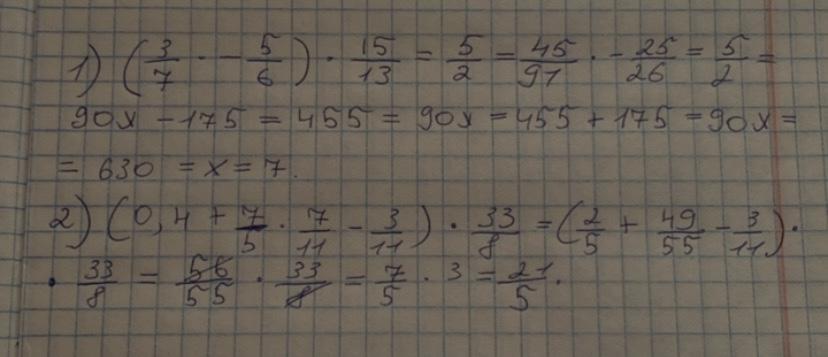 1) (3/7 · - 5/6) · 15/13 = 5/2 = 45/91 · - 25/26 = 5/2 =
90x - 175 = 455 = 90x = 455 + 175 = 90x =
= 630 = x = 7.
2) (0,4 + 7/5 · 7/11 - 3/11) · 33/8 = (2/5 + 49/55 - 3/11) ·
· 33/8 = 56/55 · 33/8 = 7/5 · 3 = 21/5.